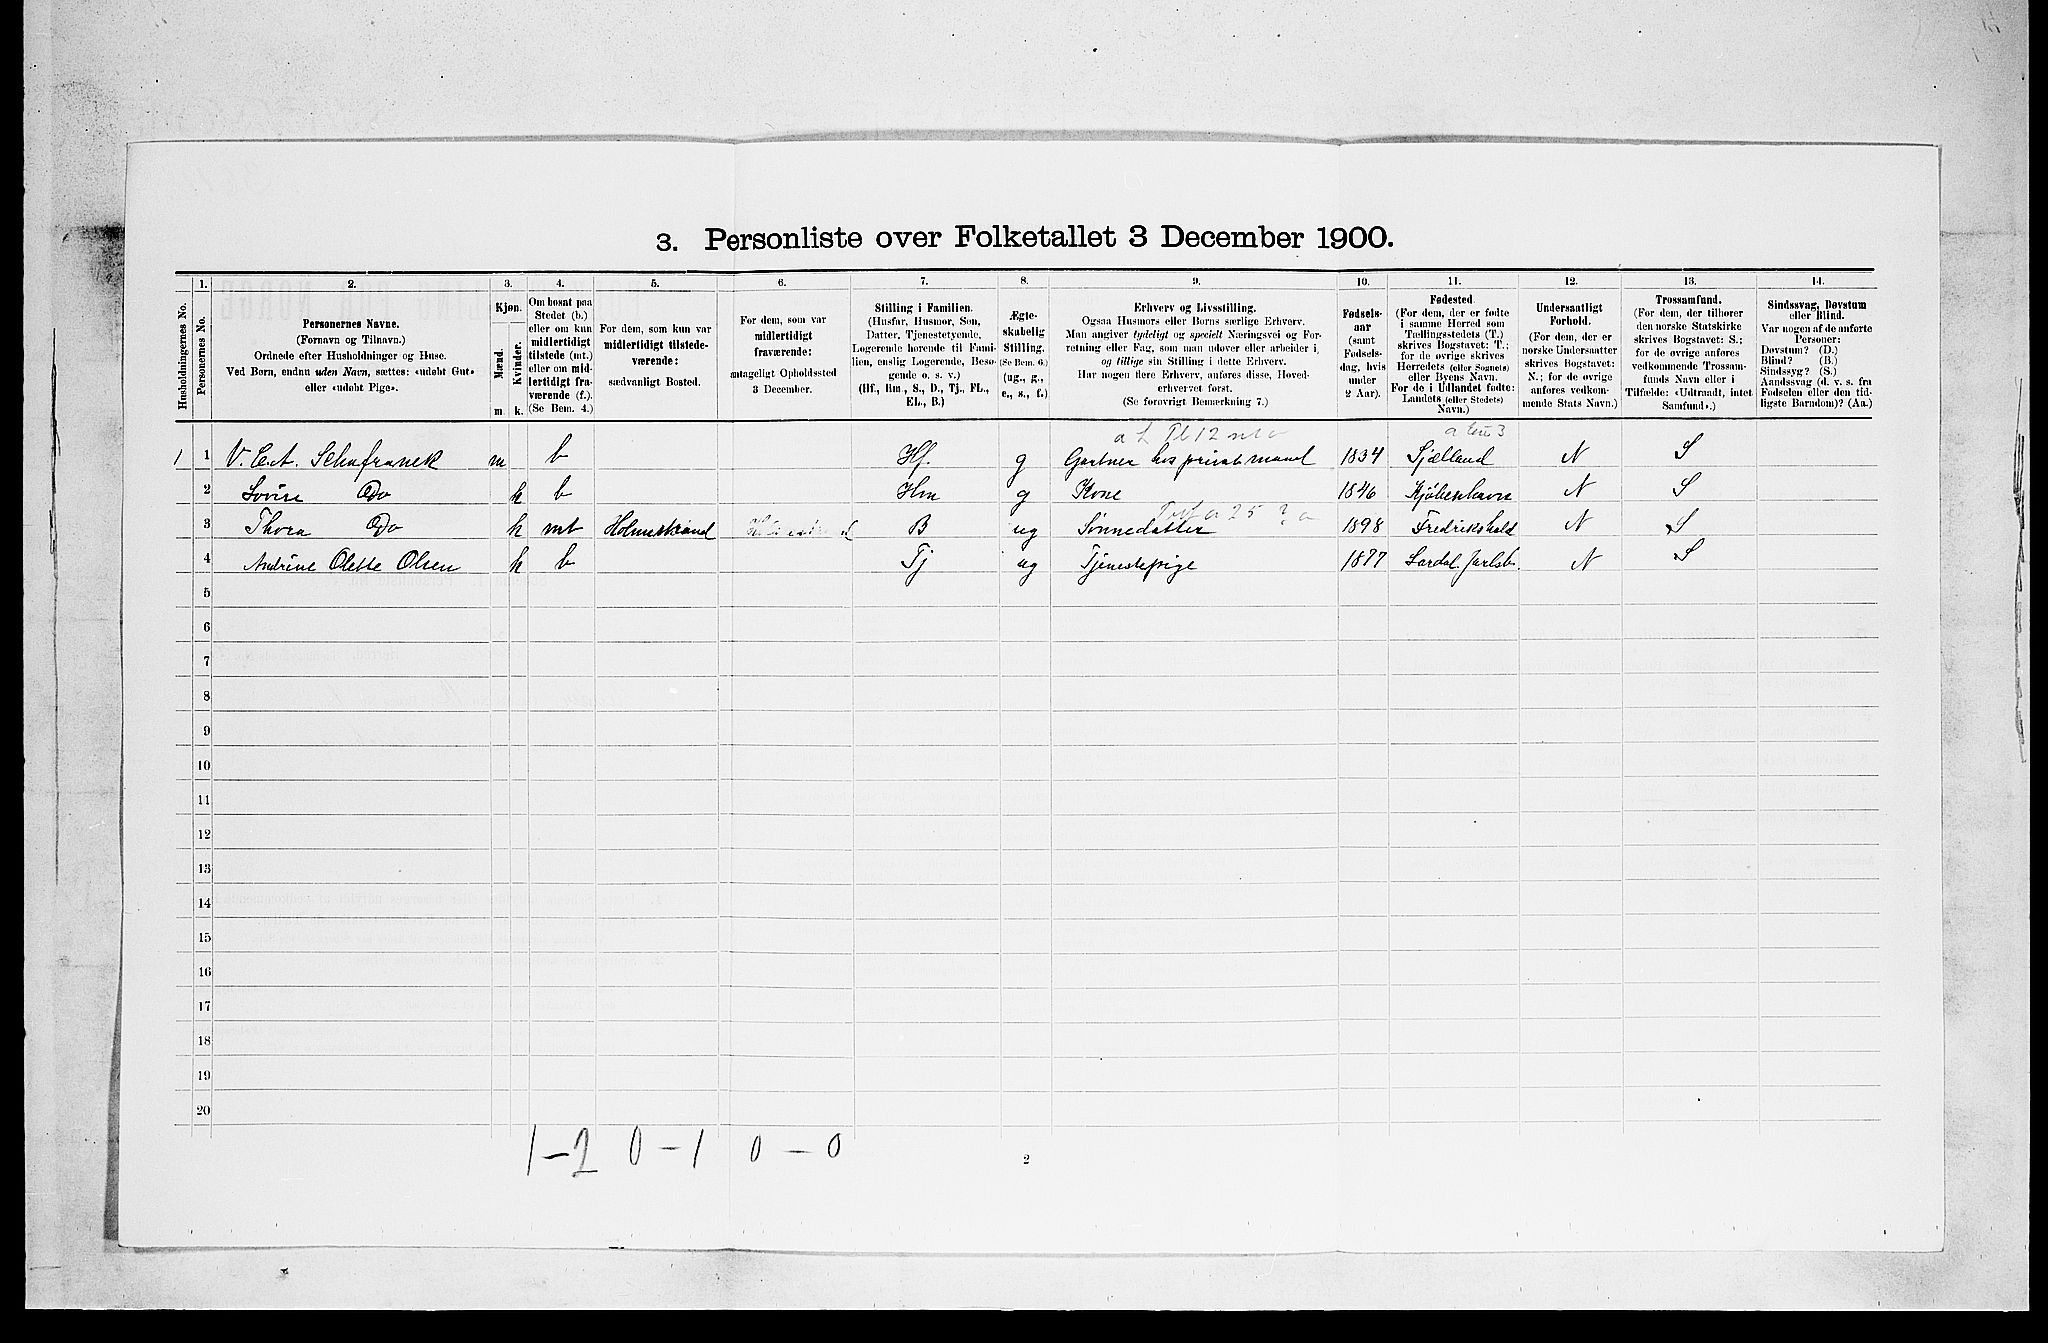 3. Personliste over Folketallet 3 December 1900.
Husholdningernes No.
1.
Personernes No.
2.
Personernes Navne.
(Fornavn og Tilnavn.)
Ordnede efter Husholdninger og Huse.
Ved Børn, endnu uden Navn, sættes: «udøbt Gut»
eller «udøbt Pige».
3.
Kjøn.
Mænd.
Kvinder.
m. k.
4.
Om bosat paa
Stedet (b.)
eller om kun
midlertidigt
tilstede (mt.)
eller om mid-
lertidigt fra-
værende (f.).
(Se Bem. 4.)
5.
For dem, som kun var
midlertidigt tilstede-
værende:
sædvanligt Bosted.
6.
For dem, som var
midlertidigt
fraværende:
antageligt Opholdssted
3 December.
7.
Stilling i Familien.
(Husfar, Husmor, Søn,
Datter, Tjenestetyende,
Logerende hørende til Fami-
lien, enslig Logerende, Besø-
gende o. s. v.)
(Hf., Hm., S., D., Tj., FL.,
EL., B.)
8.
Ægte-
skabelig
Stilling.
(Se Bem. 6.)
(ug., g.,
e., s., f.)
9.
Erhverv og Livsstilling.
Ogsaa Husmors eller Børns særlige Erhverv.
Man angiver tydeligt og specielt Næringsvei og For-
retning eller Fag, som man udøver eller arbeider i,
og tillige sin Stilling i dette Erhverv.
Har nogen flere Erhverv, anføres disse, Hoved-
erhvervet først.
(Se forøvrigt Bemerkning 7.)
10.
Fødsels-
aar
(samt
Fødsels-
dag, hvis
under
2 Aar).
11.
Fødested
(For dem, der er fødte
i samme Herred som
Tællingsstedets (T.)
skrives Bogstavet: T.;
for de øvrige skrives
Herredets (eller Sognets)
eller Byens Navn.
For de i Udlandet fødte:
Landets (eller Stedets)
Navn.)
12.
Undersaatligt
Forhold.
(For dem, der er
norske Undersaatter
skrives Bogstavet:
N.; for de øvrige
anføres vedkom-
mende Stats Navn.)
13.
Trossamfund.
(For dem, der tilhører
den norske Statskirke
skrives Bogstavet: S.;
for de øvrige anføres
vedkommende Trossam-
funds Navn eller i
Tilfælde: «Udtraadt, intet
Samfund».)
14.
Sindssvag, Døvstum
eller Blind.
Var nogen af de anførte
Personer:
Døvstum? (D.)
Blind? (B.)
Sindssyg? (S.)
Aandssvag (d. v. s. fra
Fødselen eller den tid-
ligste Barndom)? (Aa.)
1 1 V. C. A. Schafranek m b Hf. g Gartner hos privat mand 1834 Sjælland N S
2 Lovise Do k b Hm g Kone 1846 Kjøbenhavn N S
3 Thora Do k mt Holmestrand B ug Sønnedatter 1898 Fredrikshald N S
4 Andrine Olette Olsen k b Tj ug Tjenestepige 1877 Lardal. Jarlsb. N S
5
6
7
8
9
10
11
12
13
14
15
16
17
18
19
20
1 - 2 0 - 1 0 - 0
2